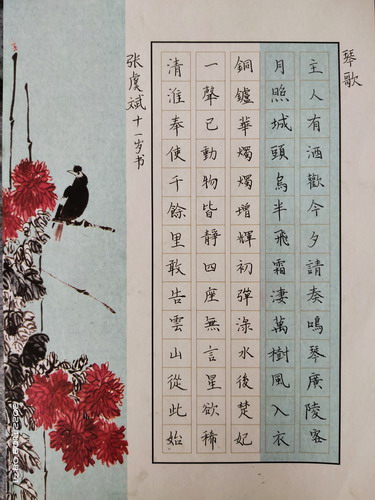 琴歌
主人有酒歡今夕請奏鳴琴廣陵客
月照城頭烏半飛霜淒萬樹風入衣
銅鑪華燭燭增輝初彈淥水後楚妃
一聲已動物皆靜四座無言星欲稀
清淮奉使千餘里敢告雲山從此始
张虞斌十一岁书